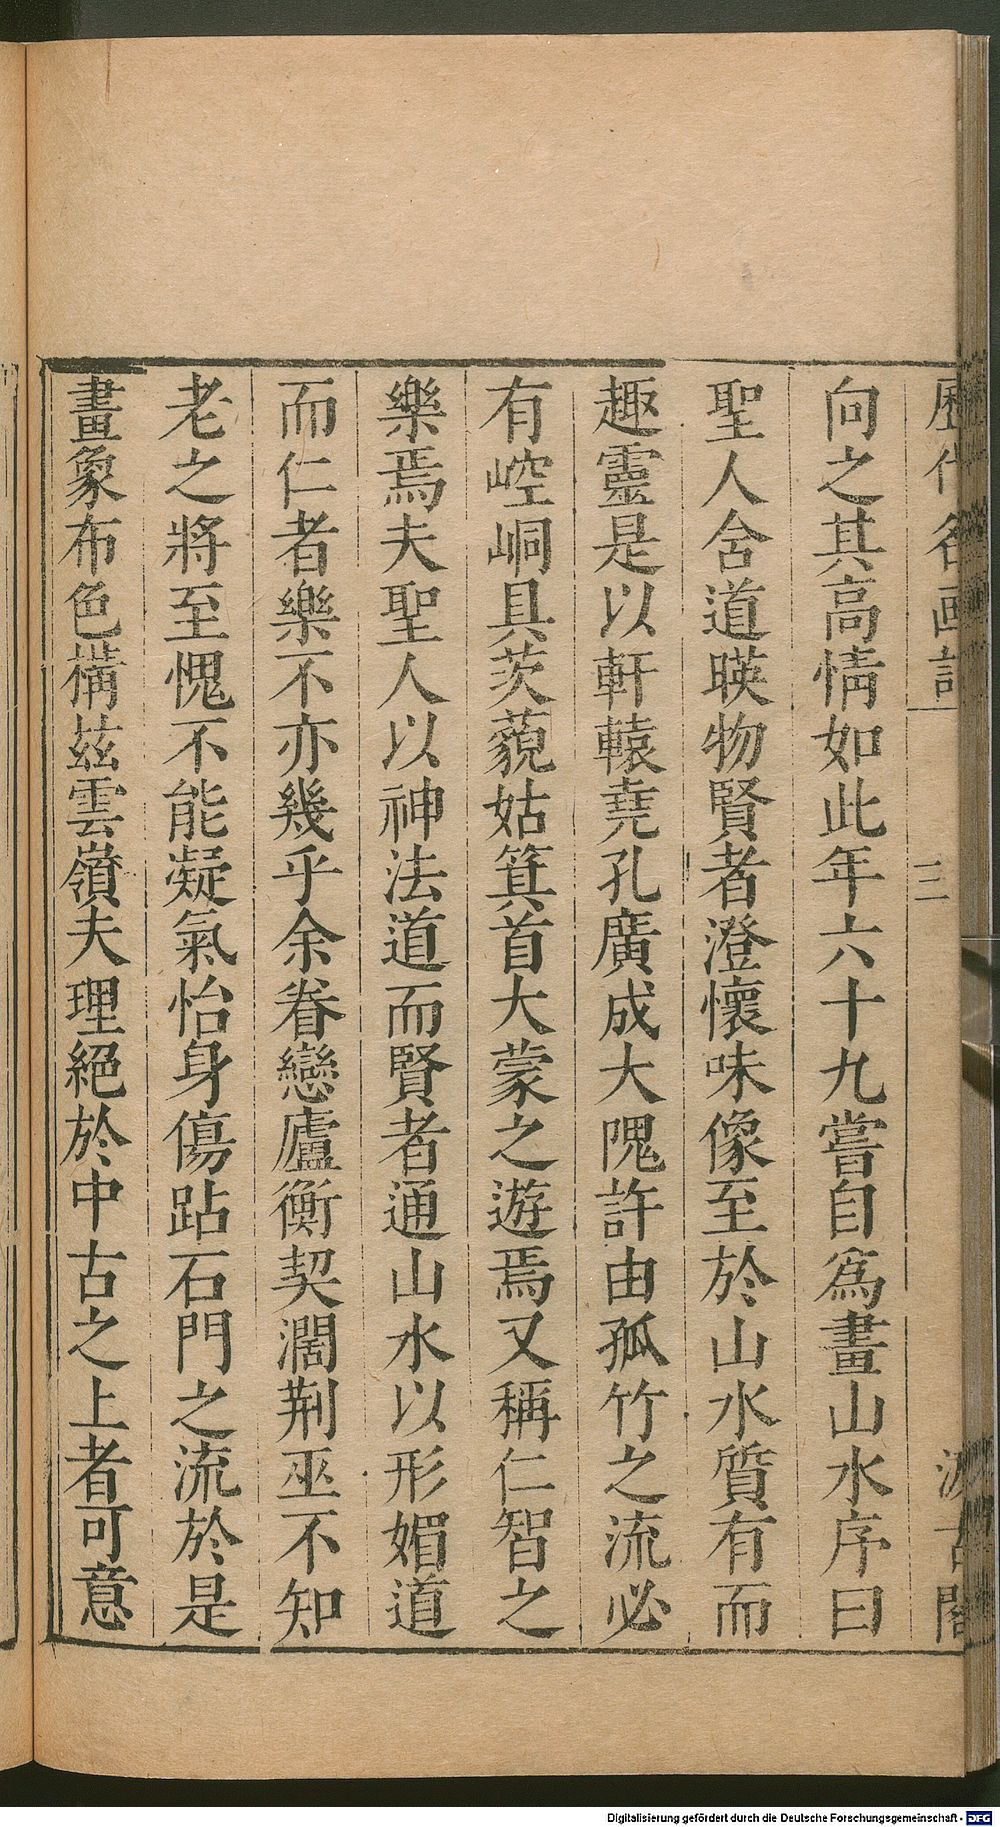 歷代名画記
三
汲古閣
向之其高情如此年六十九嘗自爲畫山水序曰
聖人含道暎物賢者澄懷味像至於山水質有而
趣靈是以軒轅堯孔廣成大隗許由孤竹之流必
有崆峒具茨藐姑箕首大蒙之遊焉又稱仁智之
樂焉夫聖人以神法道而賢者通山水以形媚道
而仁者樂不亦幾乎余眷戀廬衡契濶荆巫不知
老之將至愧不能凝氣怡身傷跕石門之流於是
畫象布色構玆雲嶺夫理絕於中古之上者可意
Digitalisierung gefördert durch die Deutsche Forschungsgemeinschaft - DFG